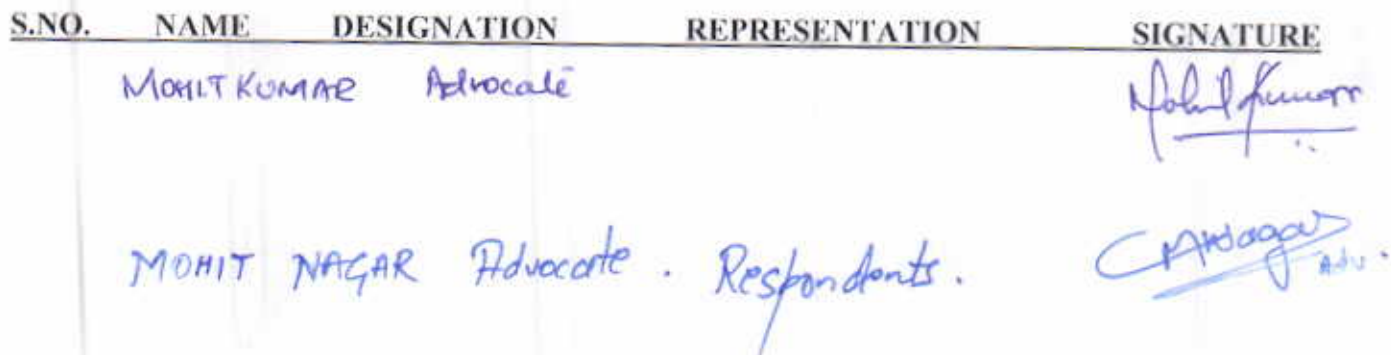 S.NO. NAME DESIGNATION REPRESENTATION SIGNATURE
MOHIT KUMAR Advocate Mohit Kumar
MOHIT NAGAR Advocate . Respondents. MNagar
Adv.